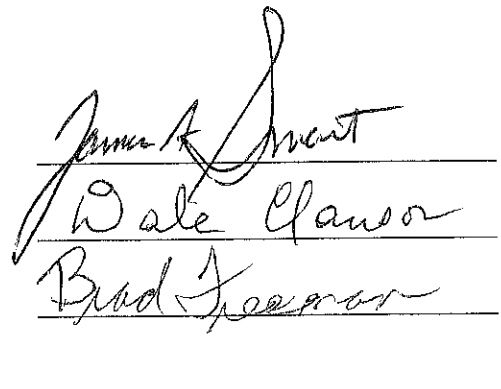 James A Smart
Dale Clauson
Brad Freeman